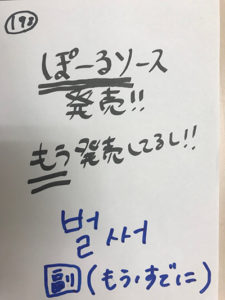 198
ぽーるソース
発売!!
もう発売してるし!!
벌써
副(もう、すでに)